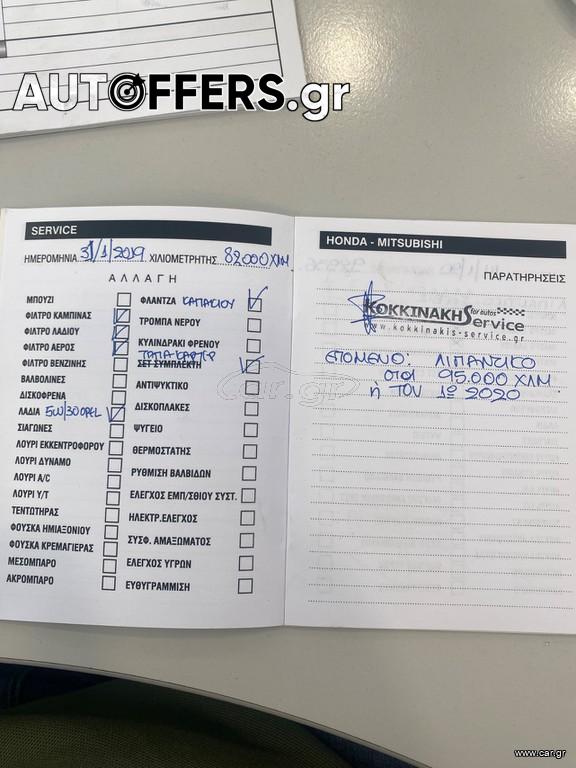 AUTOFFERS.gr
SERVICE
ΗΜΕΡΟΜΗΝΙΑ 31/1/2019 ΧΙΛΙΟΜΕΤΡΗΤΗΣ 82000 ΧΛΜ
ΑΛΛΑΓΗ
ΜΠΟΥΖΙ
ΦΙΛΤΡΟ ΚΑΜΠΙΝΑΣ
ΦΙΛΤΡΟ ΛΑΔΙΟΥ
ΦΙΛΤΡΟ ΑΕΡΟΣ
ΦΙΛΤΡΟ ΒΕΝΖΙΝΗΣ
ΒΑΛΒΟΛΙΝΕΣ
ΔΙΣΚΟΦΡΕΝΑ
ΛΑΔΙΑ 5W/30 OPEL
ΣΙΑΓΩΝΕΣ
ΛΟΥΡΙ ΕΚΚΕΝΤΡΟΦΟΡΟΥ
ΛΟΥΡΙ ΔΥΝΑΜΟ
ΛΟΥΡΙ A/C
ΛΟΥΡΙ Υ/Τ
ΤΕΝΤΩΤΗΡΑΣ
ΦΟΥΣΚΑ ΗΜΙΑΞΟΝΙΟΥ
ΦΟΥΣΚΑ ΚΡΕΜΑΓΙΕΡΑΣ
ΜΕΣΟΜΠΑΡΟ
ΑΚΡΟΜΠΑΡΟ
ΦΛΑΝΤΖΑ ΚΑΠΑΚΙΟΥ
ΤΡΟΜΠΑ ΝΕΡΟΥ
ΚΥΛΙΝΔΡΑΚΙ ΦΡΕΝΟΥ
ΤΑΠΑ ΚΑΡΤΕΡ
ΣΕΤ ΣΥΜΠΛΕΚΤΗ
ΑΝΤΙΨΥΚΤΙΚΟ
ΔΙΣΚΟΠΛΑΚΕΣ
ΨΥΓΕΙΟ
ΘΕΡΜΟΣΤΑΤΗΣ
ΡΥΘΜΙΣΗ ΒΑΛΒΙΔΩΝ
ΕΛΕΓΧΟΣ ΕΜΠ/ΣΘΙΟΥ ΣΥΣΤ.
ΗΛΕΚΤΡ.ΕΛΕΓΧΟΣ
ΣΥΣΦ. ΑΜΑΞΩΜΑΤΟΣ
ΕΛΕΓΧΟΣ ΥΓΡΩΝ
ΕΥΘΥΓΡΑΜΜΙΣΗ
HONDA - MITSUBISHI
ΠΑΡΑΤΗΡΗΣΕΙΣ
KOKKINAKHS for autos Service
www.kokkinakis-service.gr
ΕΠΟΜΕΝΟ: ΛΙΠΑΝΤΙΚΟ
ΣΤΟΙ 95.000 ΧΛΜ
ή ΤΟΝ 1º 2020
car.gr
www.car.gr